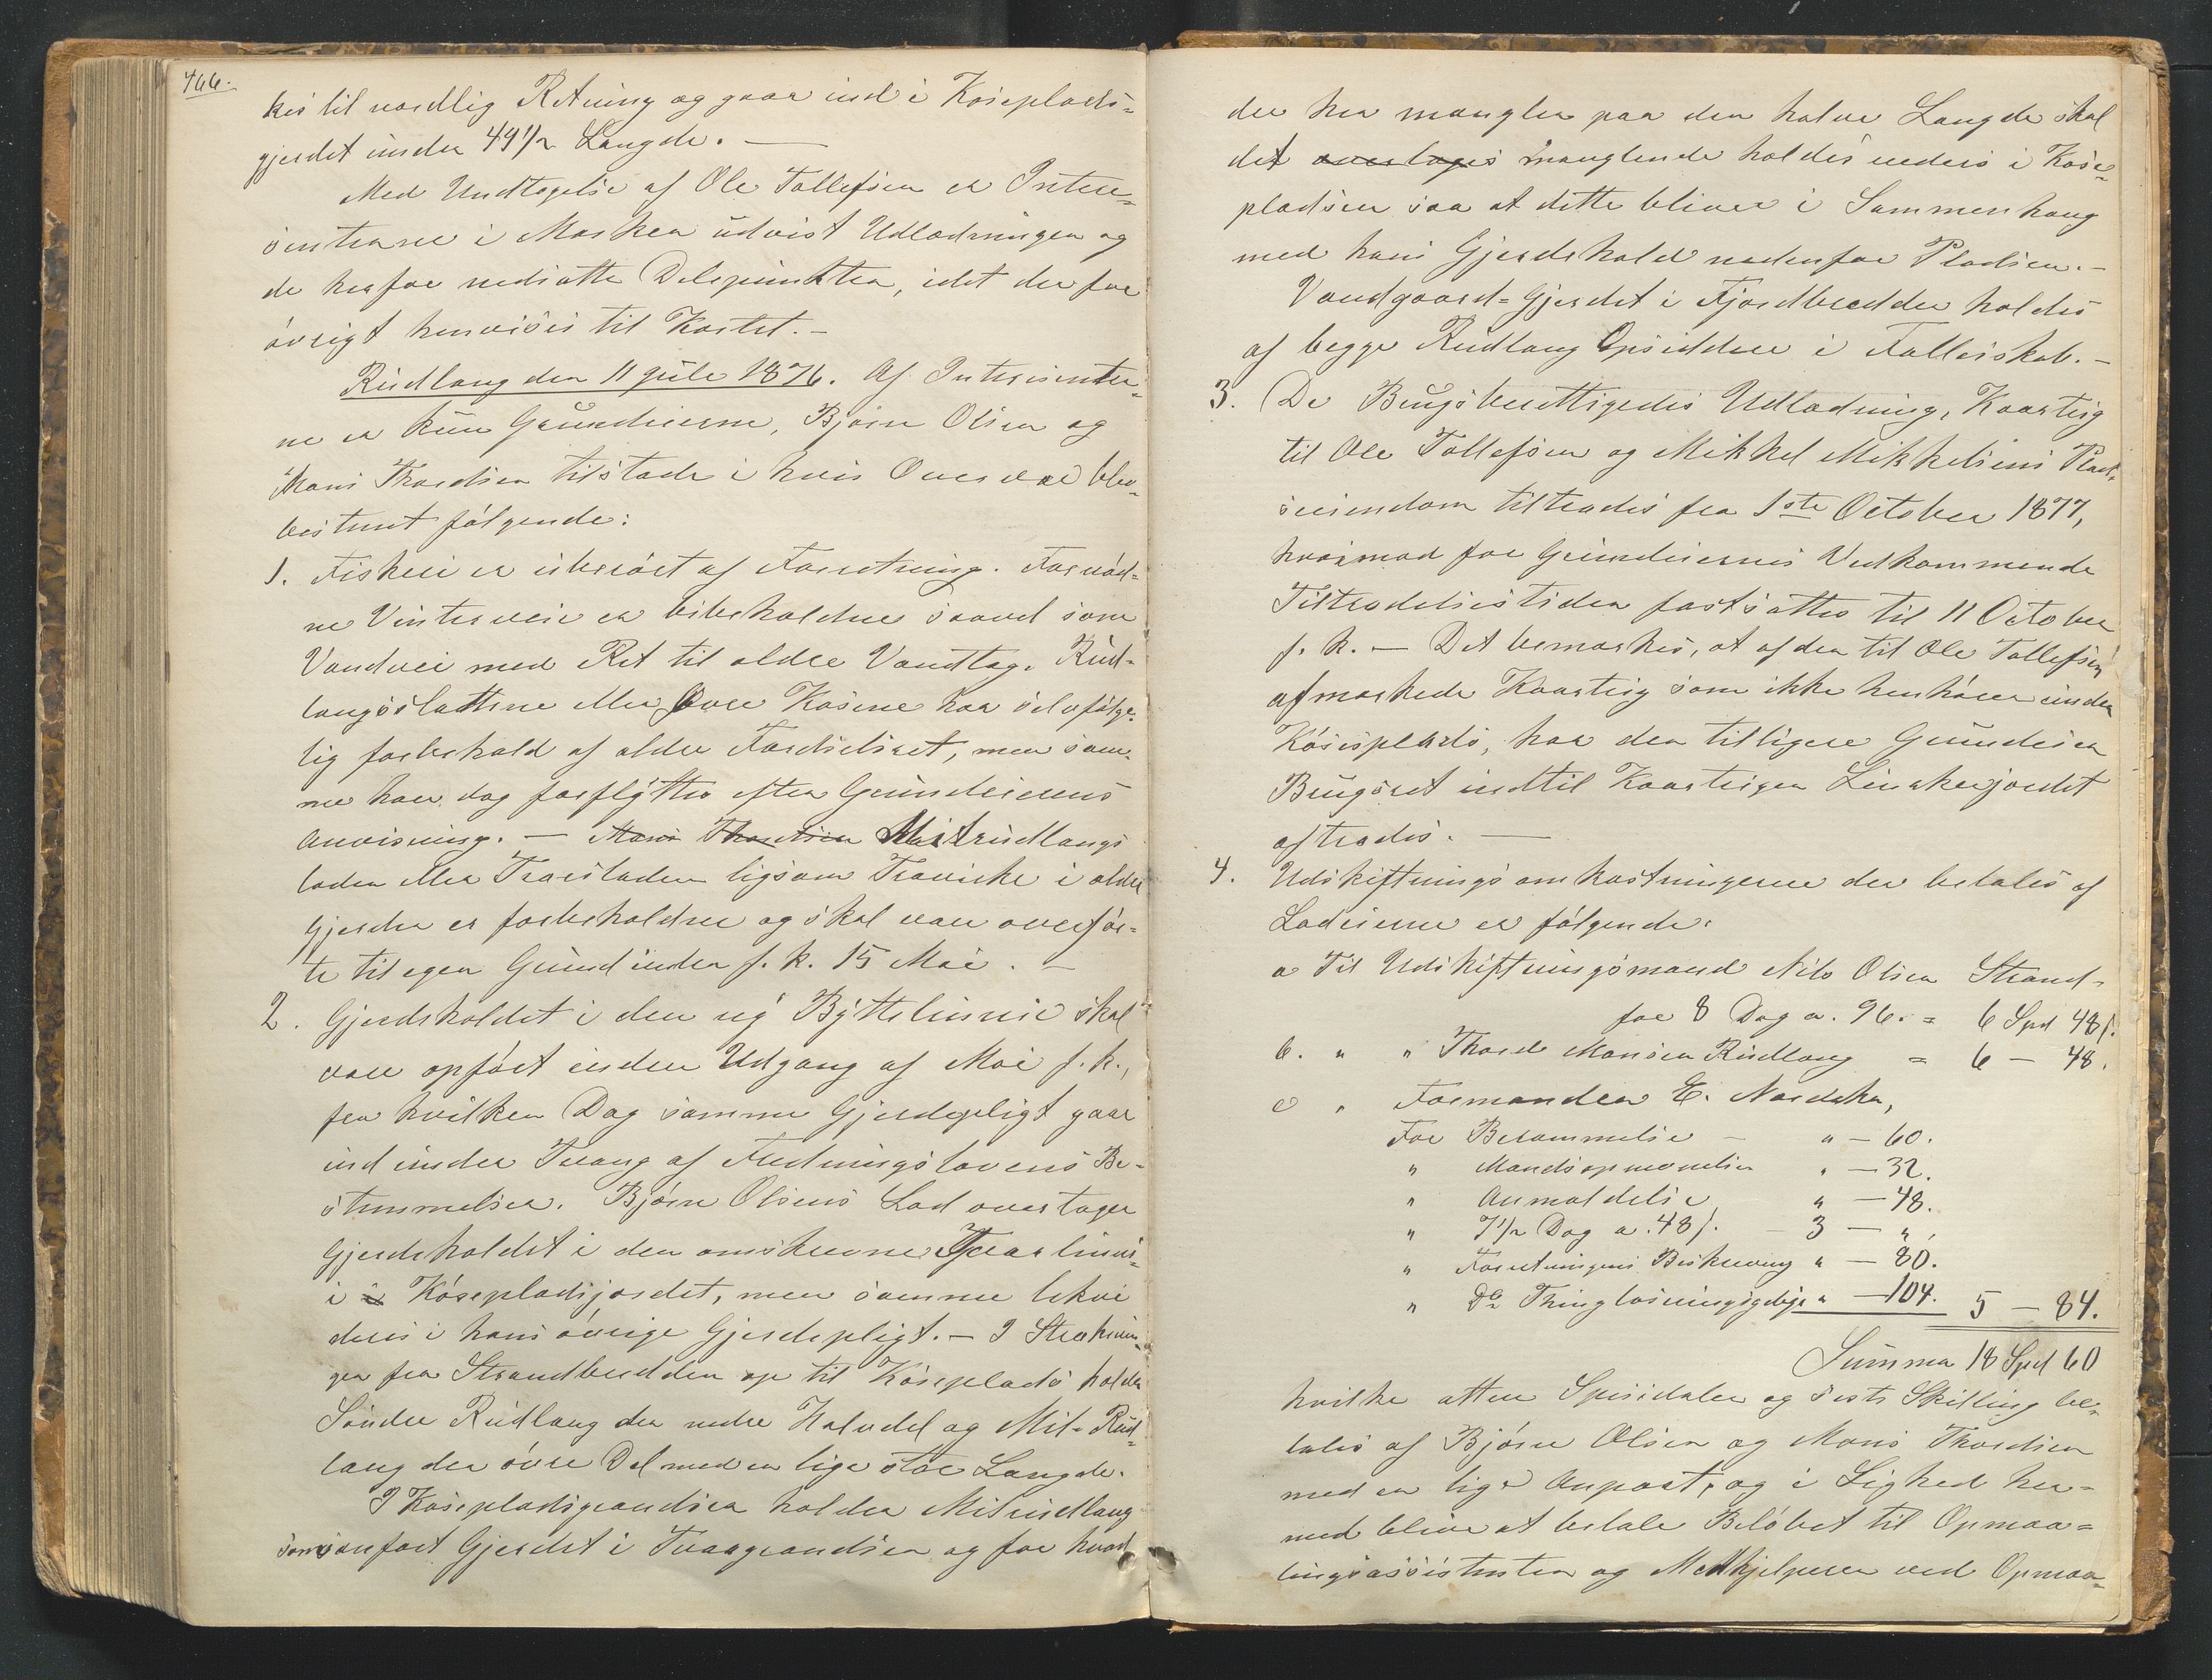 466.
kes til nordlig Retning og gaar ind i Koseplads-
gjerdet under 49 1/2 Længde. —
Med Undtagelse af Ole Tollefsen er Interes-
sentarne i Marken udvist Udlodningen og
de herfor nedsatte Delepunkter, idet der for
øvrigt henvises til Kartet. –
Rudlang den 11 juli 1876. Af Interessenter-
ne er kun Grundeierne, Bjørn Olsen og
Mons Thordsen tilstæde i hvis Overvær blev
bestemt følgende:
1. Fiskeri er uberørt af Forretning. Fornød-
ne Vinterveie er bibeholdne saavel som
Vandvei med Ret til ældre Vandtag. Rud-
langsslatterne eller Øvre Kosene har selvfølge-
lig forbehold af ældre Færdselsret, men sam-
me kan dog forflyttes efter Grundeierens
Anvisning. — Mons Thordsen Mitrudlangs
laden eller Traostaden ligsom Travirke i ældre
Gjerder er forbeholdne og skal være overfør-
te til egen Grund inden f. k. 15 Mai. –
2. Gjerdeholdet i den ny Byttelinnie skal
være opført inden Udgang af Mai f. k.,
fra hvilken Dag samme Gjerdepligt gaar
ind under Tvang af Fredningslovens Be-
stemmelser. Bjørn Olsens Lod overtager
Gjerdeholdet i den omskrevne Tværlinni-
i Kosepladsjordet, men samme bekvi
deres i hans øvrige Gjerdepligt. – I Strækin-
gen fra Strandbredden op til Koseplads holder
Søndre Rudlang den nedre Halvdel og Mit-Rud-
lang den øvre Del med en lige stor Længde.
I Kosepladsgrandsen holder Mitrudlang
som anført Gjerdet i Tværgrandsen og for hvad
der her mangler paa den halve Længde skal
det overtages manglende holdes nedeis i Kose-
pladsen saa at dette bliver i Sammenhæng
med hans Gjerdehold nedenfor Pladsen. –
Vandgaard-Gjerdet i Fjordbredden holdes
af begge Rudlang Opsiddere i Fælleskab. –
3. De Brugsberettigedes Udlodning, Kaarteig
til Ole Tollefsen og Mikkel Mikkelsens Plad-
seiendom tiltrædes fra 1ste October 1877,
hvorimod for Grundeiernes Vedkommende
Tiltrædelsestiden fastsættes til 11 October
f. k. — Det bemærkes, at af den til Ole Tollefsen
afmærkede Kaarteig som ikke henhører under
Koseplads, har den tilligere Grundeier
Brugsret indtil Kaarteigen Linakerjordet
aftrædes. —
4. Udskiftningsomkostningerne der betales af
Lodeierne er følgende:
a Til Udskiftningsmand Nils Olsen Strand-
for 8 Dag a. 96. = 6 Spd 48 s.
b. " " Thord Monsen Rudlang = 6 — 48.
c " Formanden E. Nordaker,
For Berammelse – " – 60.
" Mandsopnævnelse " — 32.
" Anmeldelse " — 48.
" 7 1/2 Dag a. 48 s. – 3 — ",
" Forretningens Beskrivning " — 80.
" Do Thinglæsningsgebyr " — 104. 5 — 84.
Summa 18 Spd 60
hvilke atten Speciedaler og sexti Skilling be-
tales af Bjørn Olsen og Mons Thordsen
med en lige Anpart, og i Lighed her-
med blive at betale Beløbet til Opmaa-
lingsassistenten og Medhjelperen ved Opmaa-